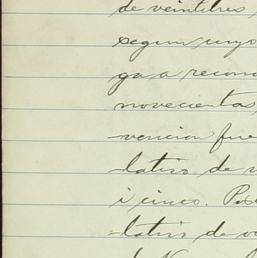 de veintitres
segun cuyo
ga a recono
novecientas
vencion fue
lativo de v
i cinco. Pos
lativo de v